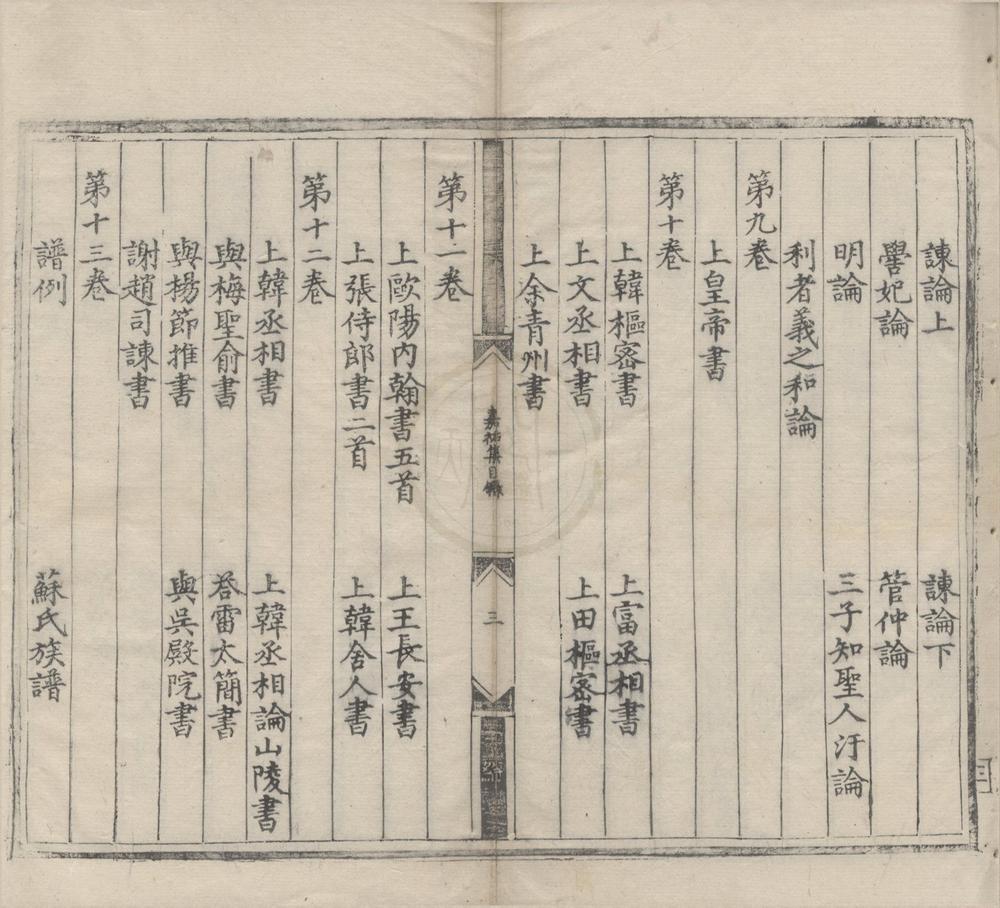 諫論上　諫論下
嚳妃論　管仲論
明論　三子知聖人汙論
利者義之和論
第九卷
上皇帝書
第十卷
上韓樞密書　上富丞相書
上文丞相書　上田樞密書
上余青州書
嘉祐集目錄
三
第十一卷
上歐陽內翰書五首　上王長安書
上張侍郎書二首　上韓舍人書
第十二卷
上韓丞相書　上韓丞相論山陵書
與梅聖俞書　答雷太簡書
與楊節推書　與吳殿院書
謝趙司諫書
第十三卷
譜例　蘇氏族譜